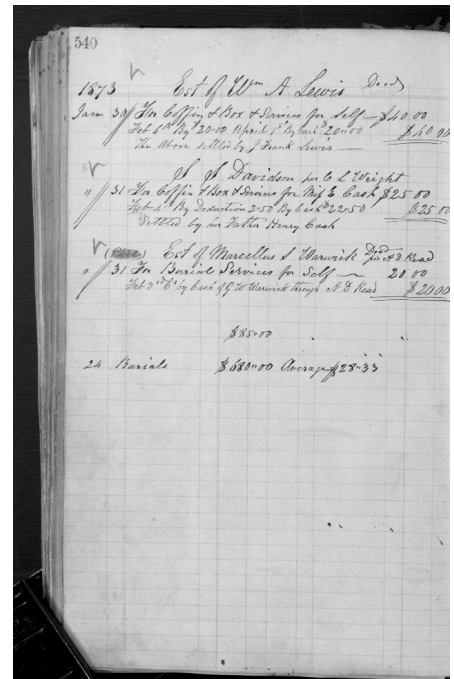 540
1873 Est of Wm A Lewis Decd
Jan 30 For Coffin & Box & Services for Self — $40.00
Feb 8th By $20.00 April 1st By Cash $20"00 $40.00
The Above settled by J Frank Lewis —
J J Davidson per C L Wright
" 31 For Coffin & Box & Services for E Cash $25.00
Feb By Deduction 2.50 By Cash $22.50 $25.00
Settled by her Father Henry Cash
Est of Marcellus S Warwick Decd per A D Read
" 31 For Burial Services for Self — 20.00
Feb 3rd By Cash of G W Warwick through A D Read $20.00
$85"00
24 Burials $680"00 Average $28"33